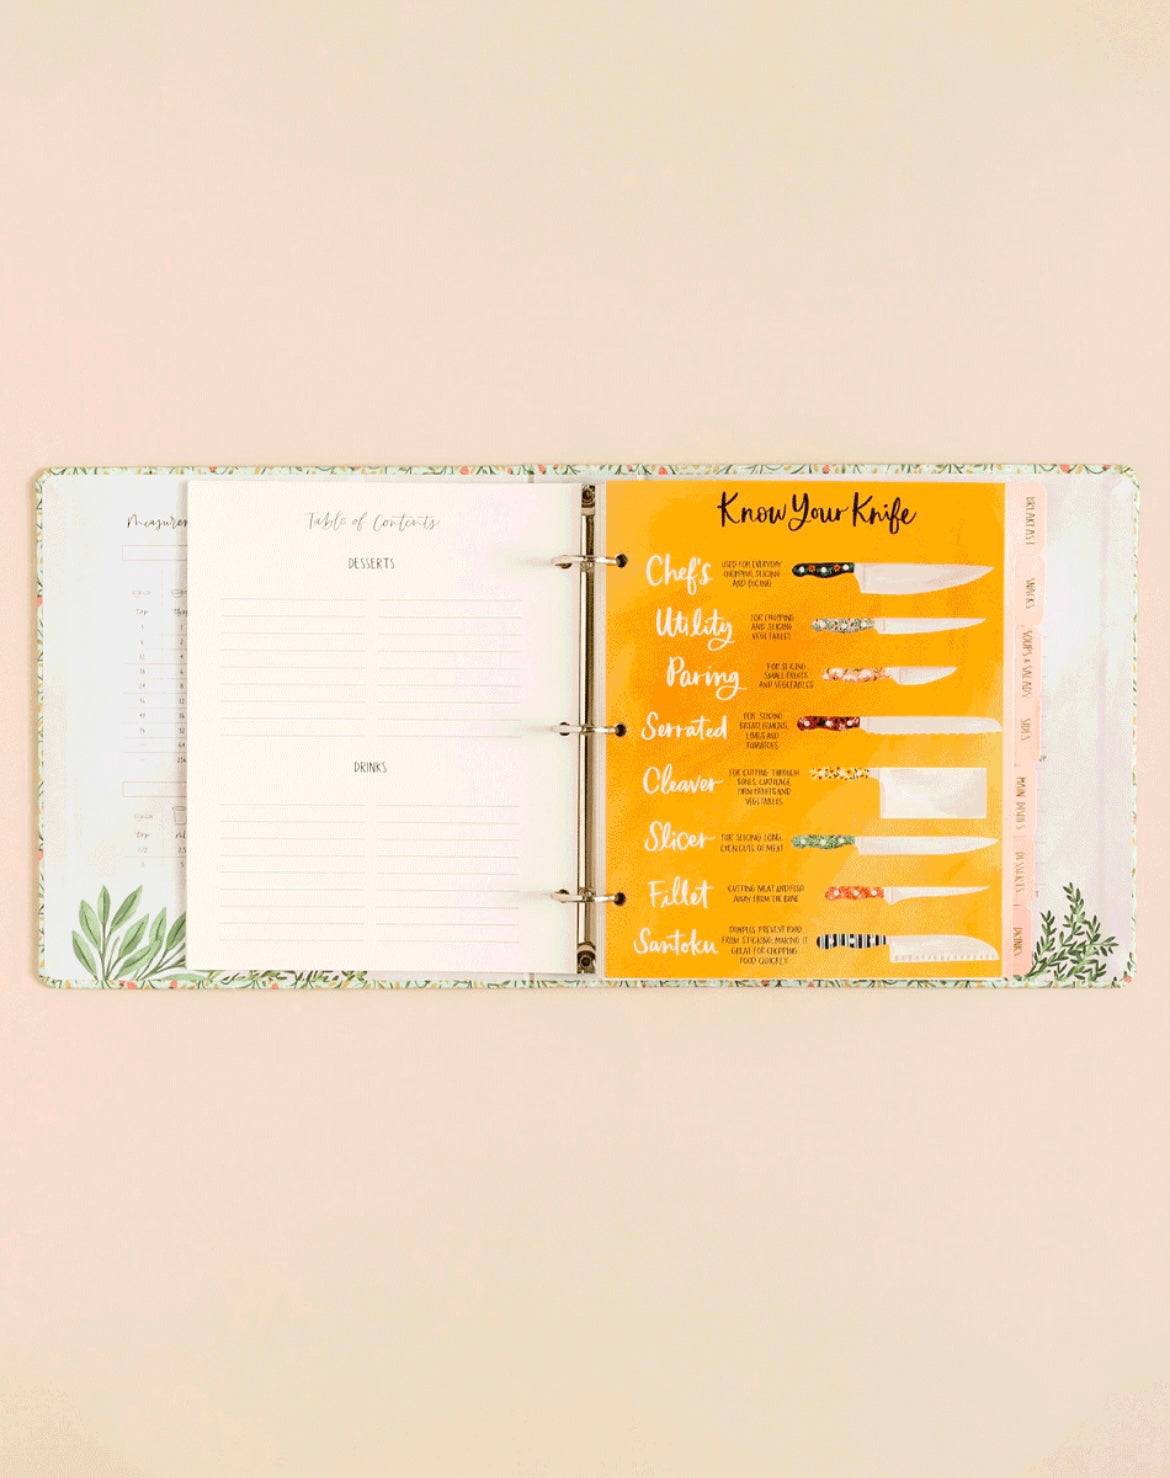 Measure
TSP
5
1
12
4
16
6
24
8
36
12
48
16
TSP
1/2
2.5
5
Table of Contents
DESSERTS
DRINKS
Know Your Knife
Chef's
USED FOR EVERYDAY
CHOPPING, SLICING
AND DICING
Utility
FOR CHOPPING
AND SLICING
VEGETABLES
Paring
FOR SLICING
SMALL FRUITS
AND VEGETABLES
Serrated
FOR SLICING
BREAD, LEMONS,
LIMES AND
TOMATOES
Cleaver
FOR CUTTING THROUGH
BONES, CARTILAGE,
FIRM FRUITS AND
VEGETABLES
Slicer
FOR SLICING LONG,
EVEN CUTS OF MEAT
Fillet
CUTTING MEAT AND FISH
AWAY FROM THE BONE
Santoku
DIMPLES PREVENT FOOD
FROM STICKING, MAKING IT
GREAT FOR CHOPPING
FOOD QUICKLY
BREAKFAST
SNACKS
SOUPS & SALADS
SIDES
MAIN DISHES
DESSERTS
DRINKS